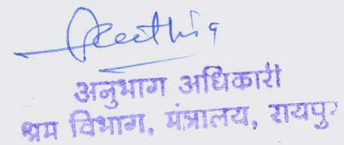 अनुभाग अधिकारी
श्रम विभाग, मंत्रालय, रायपुर